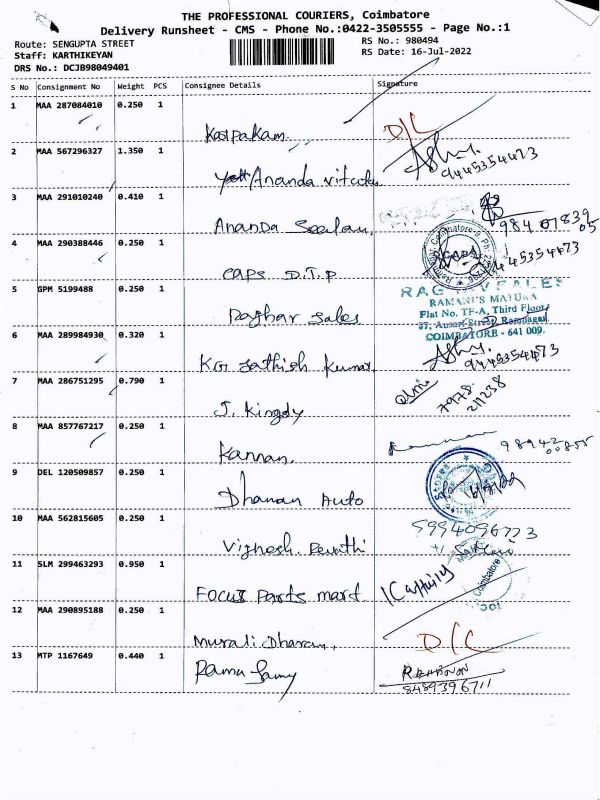 THE PROFESSIONAL COURIERS, Coimbatore
Delivery Runsheet - CMS - Phone No.:0422-3505555 - Page No.:1
Route: SENGUPTA STREET
RS No.: 980494
Staff: KARTHIKEYAN
RS Date: 16-Jul-2022
DRS No.: DCJB98049401
S No Consignment No Weight PCS Consignee Details Signature
1 MAA 287084010 0.250 1
Karpakam D/C
2 MAA 567296327 1.350 1
Ananda 9445354473
3 MAA 291010240 0.410 1
Ananda
4 MAA 290388446 0.250 1
Caps D.T.P
5 GPM 5199488 0.250 1
Raghav Sales
RAMANI'S MAYURA
Flat No. TF-A, Third Floor,
COIMBATORE - 641 009.
6 MAA 289984930 0.320 1
KG Sathish Kumar 9445354473
7 MAA 286751295 0.790 1
J. Kingdy 7978 211238
8 MAA 857767217 0.250 1
Kannan 98942 00855
9 DEL 120509857 0.250 1
Dhanan Auto
10 MAA 562815605 0.250 1
Vignesh. Revathi 5994096773
11 SLM 299463293 0.950 1
Focus Parts mart
Coimbatore
12 MAA 290895188 0.250 1
Murali Dharan, D/C
13 MTP 1167649 0.440 1
Rama Samy
8489396711